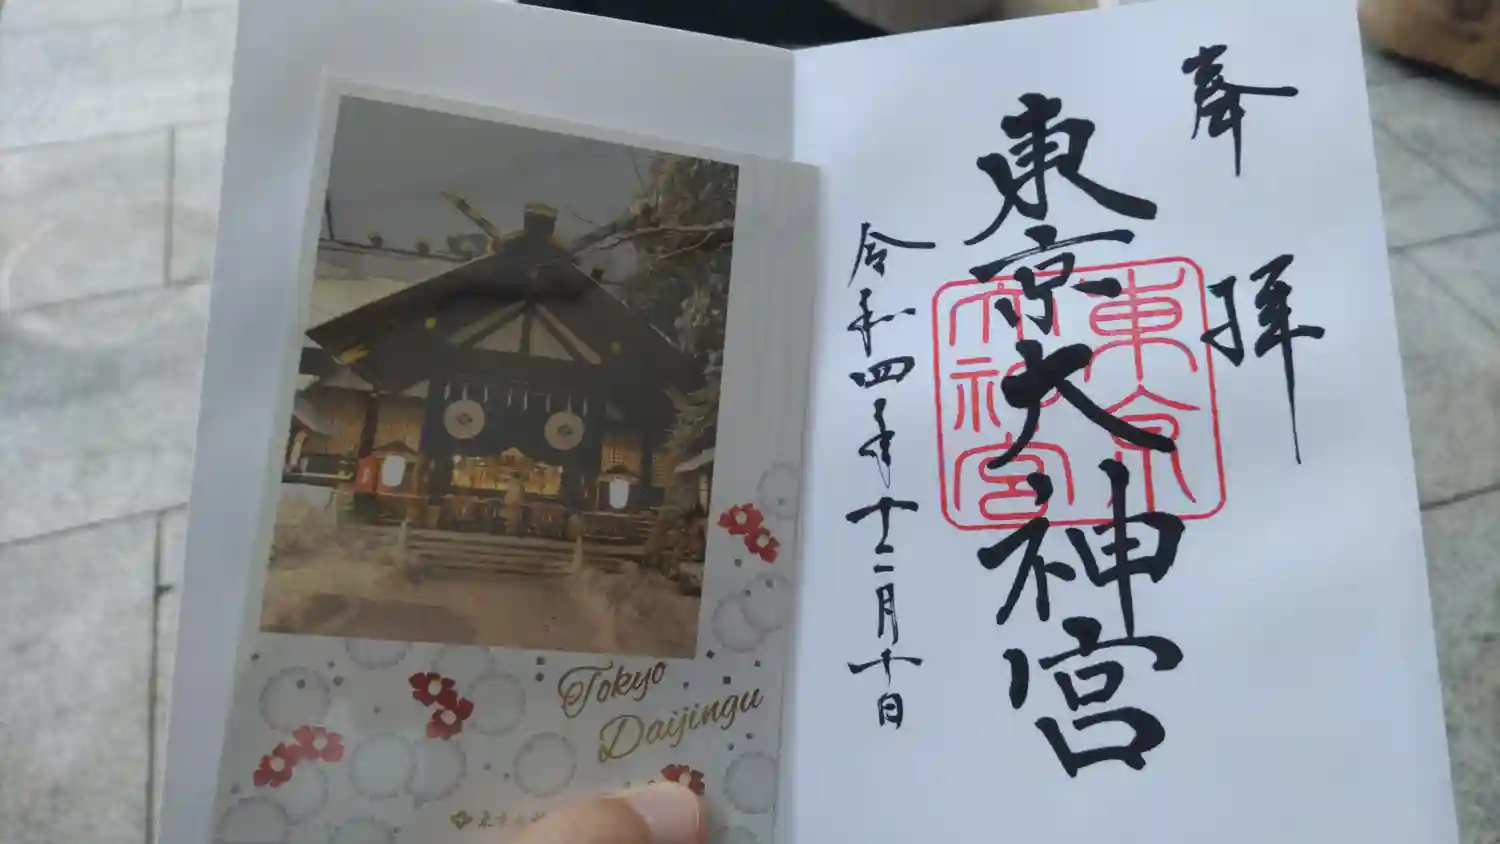 奉拝
東京大神宮
東京
大神宮
令和四年十二月十日
Tokyo
Daijingu